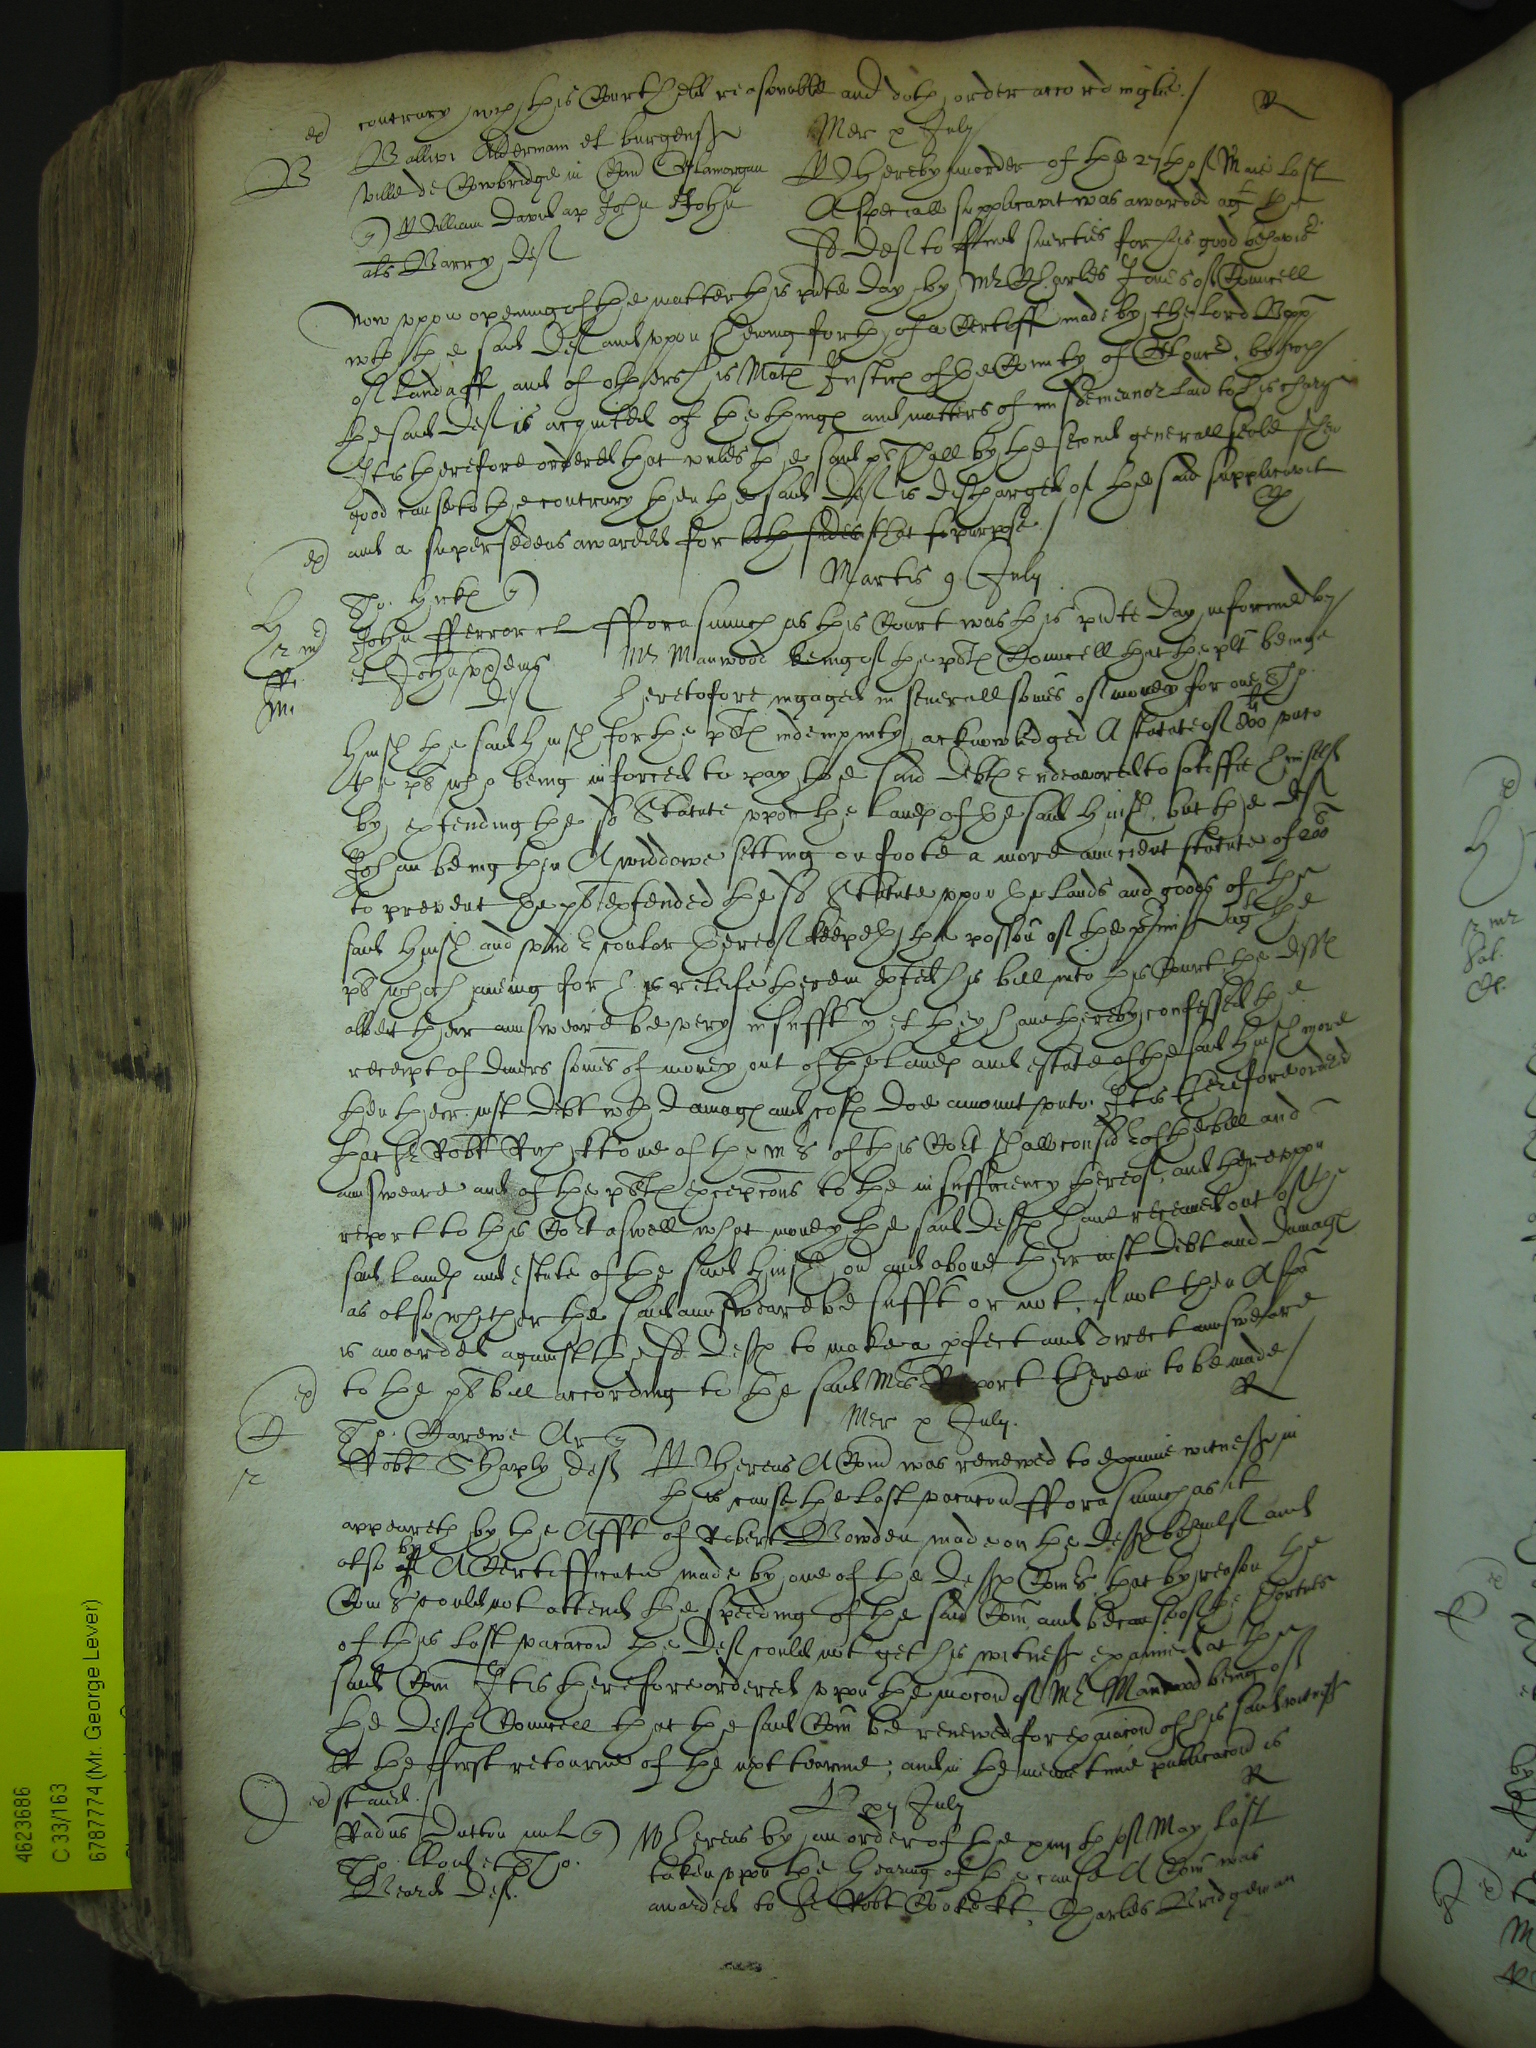 contrary wch this Court held reasonable and doth order accordinglie./
R
ex
Mer x July
B
Ballivi Aldermani et burgenss
ville de Cowbridge in Com Glamorgan
q William David ap John John
als Barry Def
Whereby an order of the 27th of Maie last
A speciall supplicavit was awarded agt the
sd Def to find suerties for his good behavior
Now uppon opening of the matter this pnte day by Mr Charles Jones of Councell
wth the said Def and uppon shewing forth of a Certiff made by the Lord Bpp
of Landaff and of others his Mats Justices of the County of Glouc, by wch
the said Def is acquited of the things and matters of misdemeanor laid to his charg
It is therefore ordered that unles the said pl shall by the second generall seale shew
good cause to the contrary then the said Def is discharged of the said supplicavit
and a supersedeas awarded for that purpose /
ex
Martis 9 July
H
Tho. Hicks q
John Fferror et
et Johan
Def
Fforasmuch as this Court was this pnte day informed by
Mr Manwood being of the plts Councell that the plt being
heretofore ingaged in severall somes of money for one Tho.
Hinsh the said Hinsh for the plts indempnity acknowledged A statute of 800li unto
the plt who being inforced to pay the said debts endeavored to satisfie himself
by extending the sd Statute uppon the Lands of the said Hinsh, but the Def
Johan being then A widdowe setting on foote a more auncient statute of 200li
to prevent the plt extended the sd Statute uppon the lands and goods of the
said Hinsh and under coulor thereof keepeth the possion of the agt the
plt which having for his releife therein exhited his bill into this Court the Defts
albeit their aunsweare be very insuffict yet they have thereby confessed the
receipt of divers somes of money out of the Lands and estate of the said Hinsh more
then their just debt wth damages and costs doe amount unto It is therefore ordered
that Sr Robt Rich kt one of the mrs of this Cort shall consider of the bill and
aunsweare and of the plts excepcons to the insufficiency thereof, and thereuppon
report to this Cort aswell what money the said Defts have receaved out of the
said Lands and estate of the said Hinsh on and above their just debt and damages
as also whether the said aunsweare be suffict or not, if not then A spa
is awarded against the sd Defts to make a pfect and direct aunsweare
to the plts bill according to the said Mrs Report therein to be made /
R
ex
Mer x July.
C
Tho. Carewe Ar q
Robt Sharply Def
Whereas A Com was renewed to examine witnesses in
this cause the last vacacon Fforasmuch as it
appeareth by the Afft of Robert Bowden made on the Defts behalf and
also by A Certifficate made by one of the Defts Comrs that by reason the
Comrs could not attend the speeding of the said Com and because of the shortnes
of this last vacacon the Def could not get his witnesses examined at the
said Com It is therefore ordered uppon the mocon of Mr Manwood being of
the Defts Councell that the said Com be renewed for examiacon of his said witnesses
the first retourne of the next tearme; and in the meane time publicacon is
staied.
R
ex
July
D
Radus Dutton mil q
Tho. et Tho.
Beard Def.
Whereas by an order of the xiiijth of May last
taken uppon the hearing of the cause A Com was
awarded to Sr Robt Cooke kt, Charles Bridgeman
4623686
C 33/163
6787774 (Mr. George Lever)